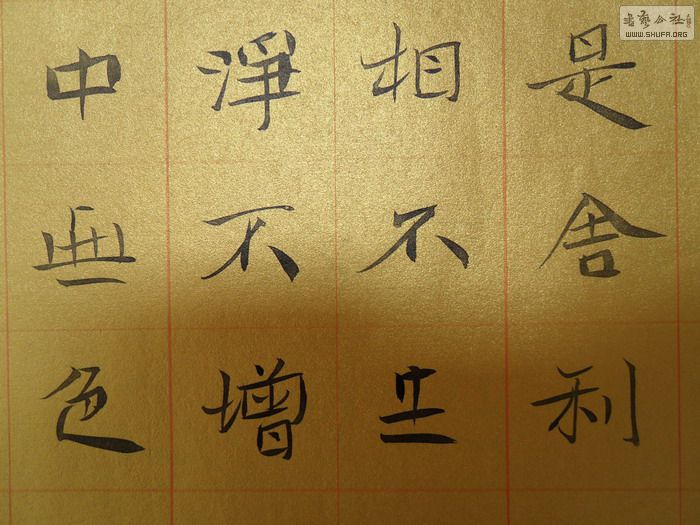 是舍利
相不生
淨不增
中無色
書藝公社
WWW.SHUFA.ORG